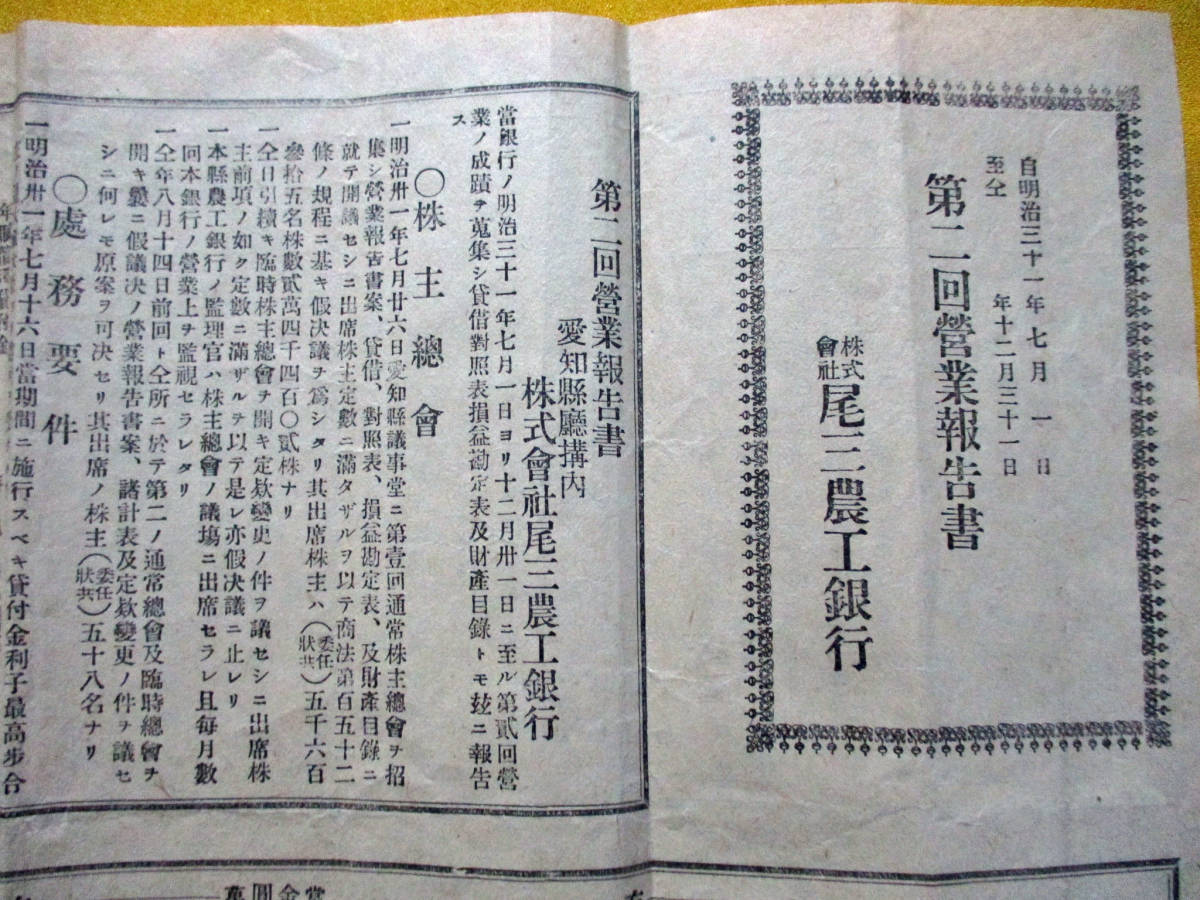 自明治三十一年七月一日
至仝年十二月三十一日
第二回營業報告書
株式會社尾三農工銀行
第二回營業報告書
愛知縣廳搆内
株式會社尾三農工銀行
當銀行ノ明治三十一年七月一日ヨリ十二月卅一日ニ至ル第貳回營
業ノ成蹟ヲ蒐集シ貸借對照表損益勘定表及財産目錄トモ玆ニ報告
ス
〇株主總會
一明治卅一年七月廿六日愛知縣議事堂ニ第壹回通常株主總會ヲ招
集シ營業報告書案、貸借、對照表、損益勘定表、及財產目錄ニ
就テ開議セシニ出席株主定數ニ滿タザルヲ以テ商法第百五十二
條ノ規程ニ基キ假決議ヲ爲シタリ其出席株主ハ(委任狀共)五千六百
參拾五名株數貳萬四千四百〇貳株ナリ
一仝日引續キ臨時株主總會ヲ開キ定欵變更ノ件ヲ議セシニ出席株
主前項ノ如ク定數ニ滿ザルヲ以テ是レ亦假決議ニ止レリ
一本縣農工銀行ノ監理官ハ株主總會ノ議塲ニ出席セラレ且每月數
回本銀行ノ營業上ヲ監視セラレタリ
一仝年八月十四日前回ト仝所ニ於テ第二ノ通常總會及臨時總會ヲ
開キ曩ニ假議決ノ營業報告書案、諸計表及定欵變更ノ件ヲ議セ
シニ何レモ原案ヲ可決セリ其出席ノ株主(委任狀共)五十八名ナリ
〇處務要件
一明治卅一年七月十六日當期間ニ施行スベキ貸付金利子最高步合